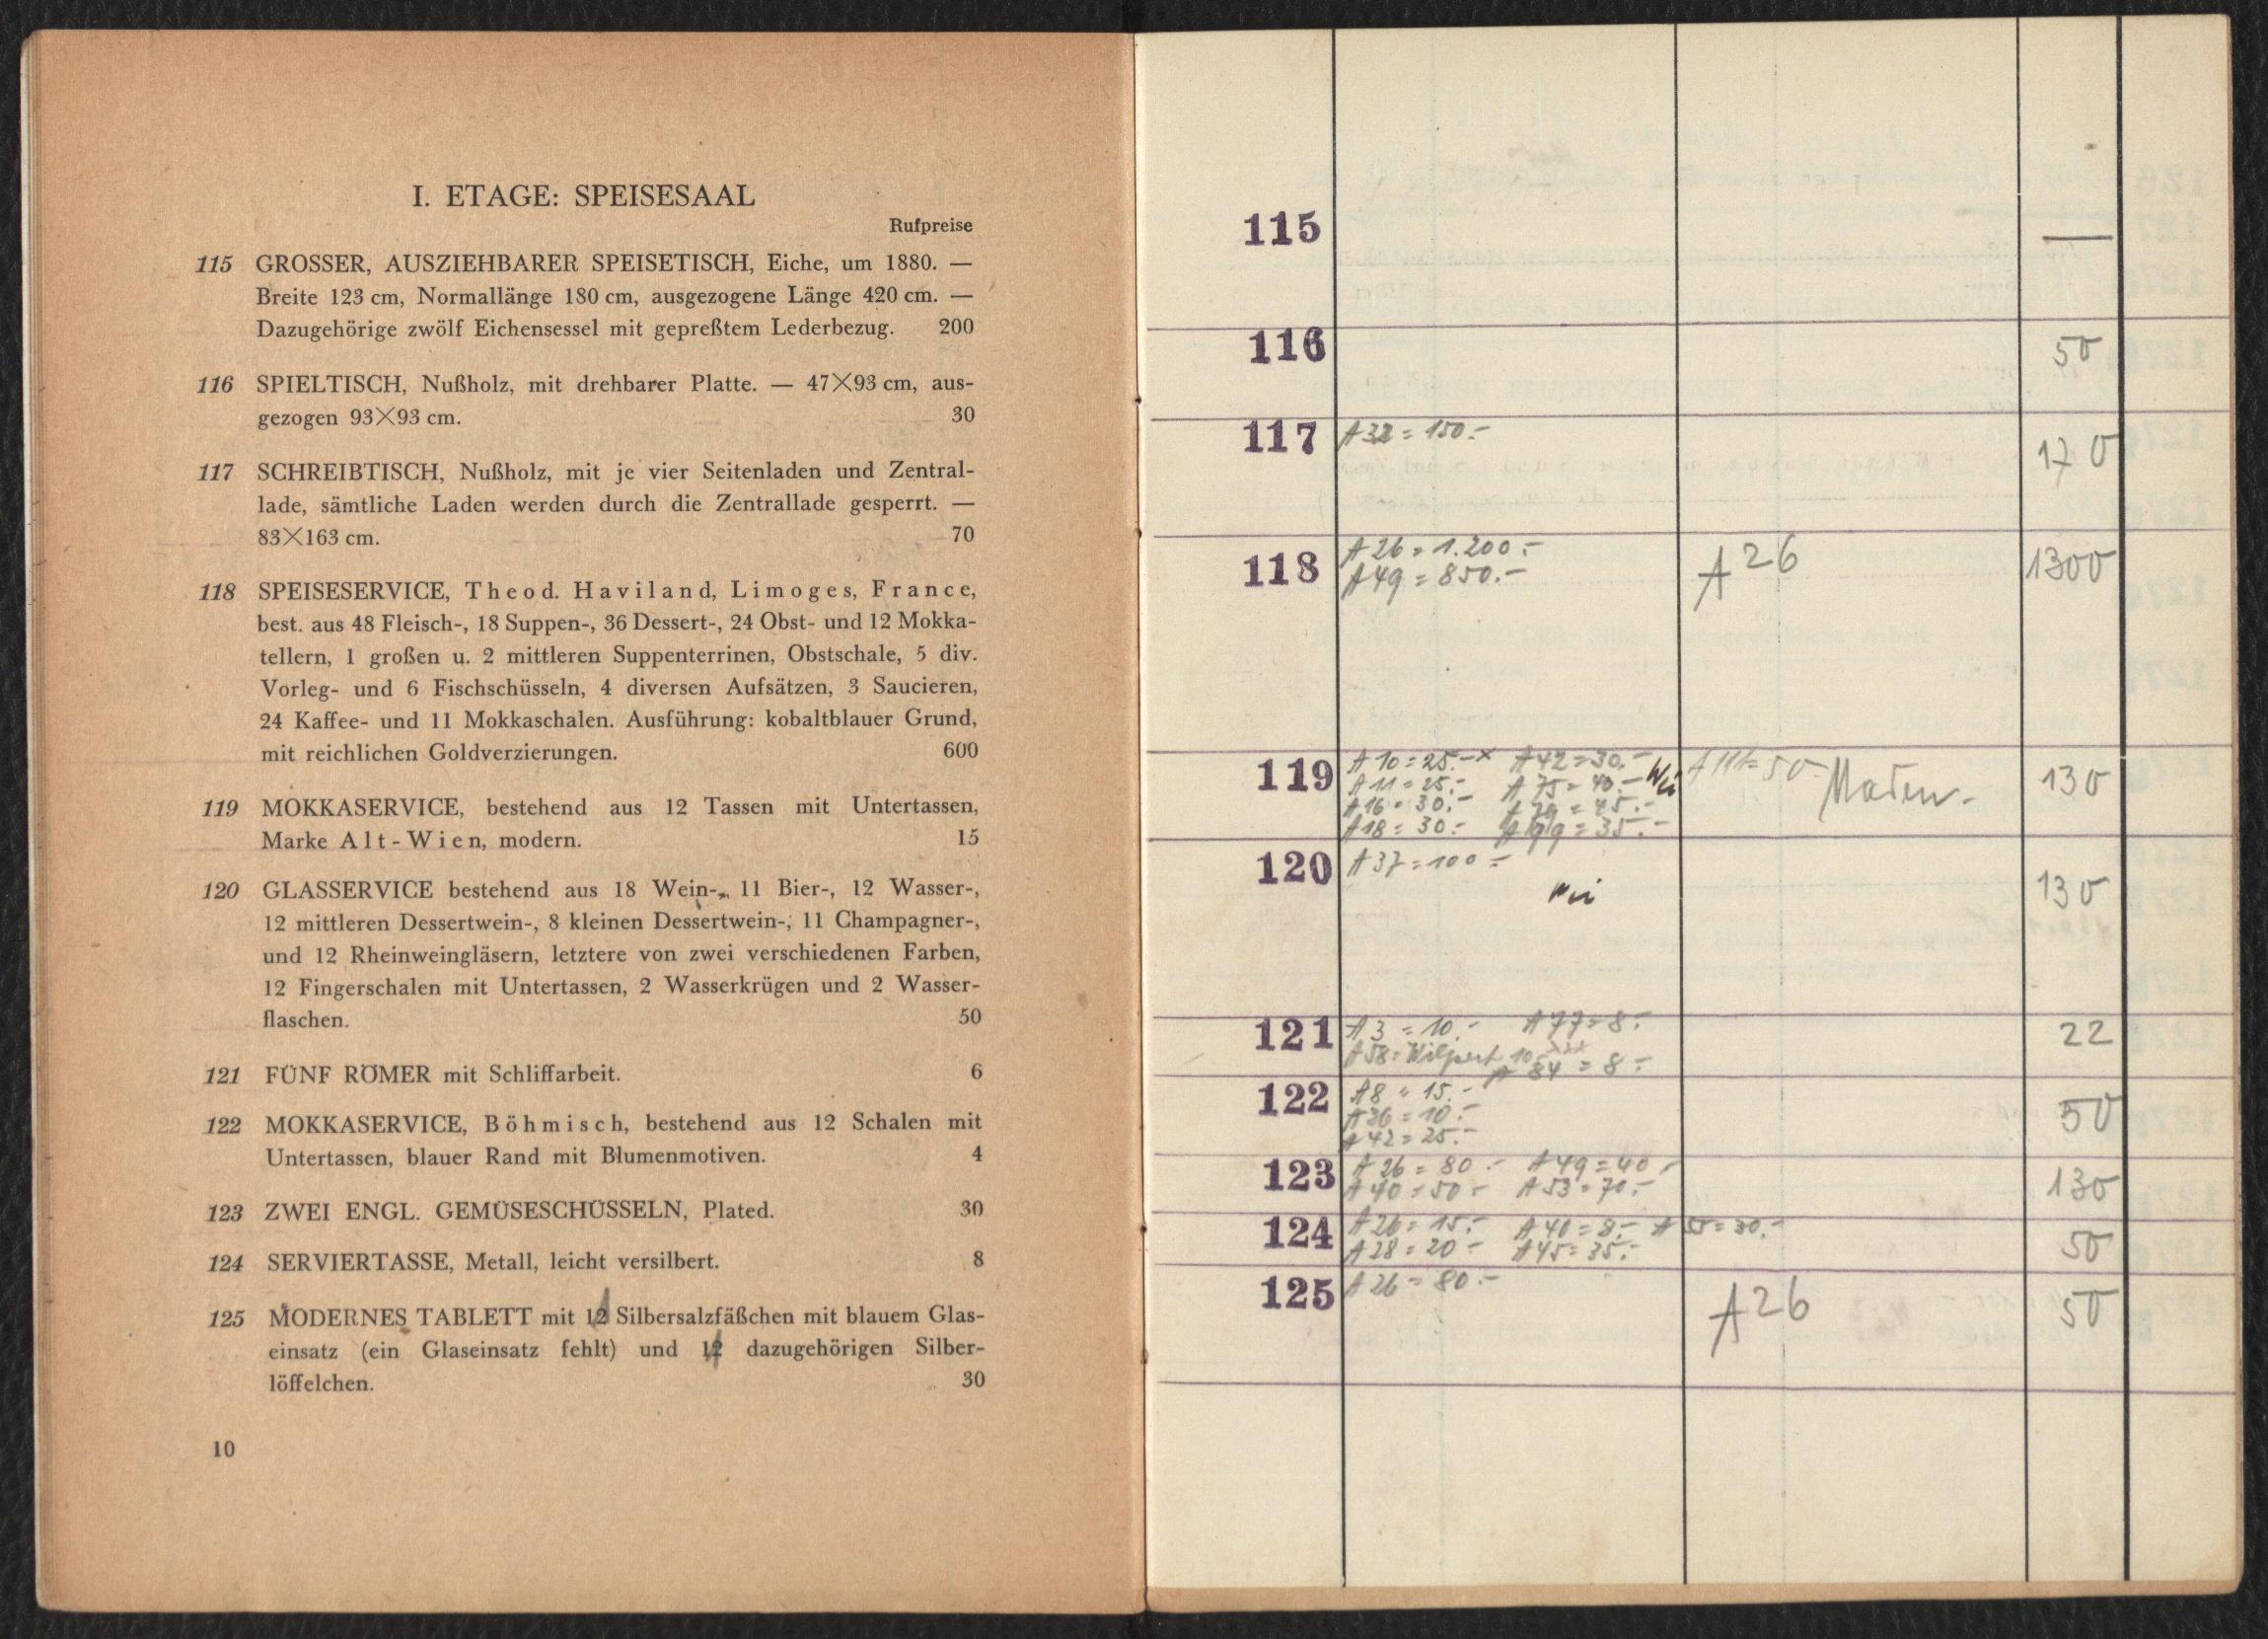 I. ETAGE: SPEISESAAL
Rufpreise
115 GROSSER, AUSZIEHBARER SPEISETISCH, Eiche, um 1880. —
Breite 123 cm, Normallänge 180 cm, ausgezogene Länge 420 cm. —
Dazugehörige zwölf Eichensessel mit gepreßtem Lederbezug. 200
116 SPIELTISCH, Nußholz, mit drehbarer Platte. — 47×93 cm, aus-
gezogen 93×93 cm. 30
117 SCHREIBTISCH, Nußholz, mit je vier Seitenladen und Zentral-
lade, sämtliche Laden werden durch die Zentrallade gesperrt. —
83×163 cm. 70
118 SPEISESERVICE, Theod. Haviland, Limoges, France,
best. aus 48 Fleisch-, 18 Suppen-, 36 Dessert-, 24 Obst- und 12 Mokka-
tellern, 1 großen u. 2 mittleren Suppenterrinen, Obstschale, 5 div.
Vorleg- und 6 Fischschüsseln, 4 diversen Aufsätzen, 3 Saucieren,
24 Kaffee- und 11 Mokkaschalen. Ausführung: kobaltblauer Grund,
mit reichlichen Goldverzierungen. 600
119 MOKKASERVICE, bestehend aus 12 Tassen mit Untertassen,
Marke Alt-Wien, modern. 15
120 GLASSERVICE bestehend aus 18 Wein-, 11 Bier-, 12 Wasser-,
12 mittleren Dessertwein-, 8 kleinen Dessertwein-, 11 Champagner-,
und 12 Rheinweingläsern, letztere von zwei verschiedenen Farben,
12 Fingerschalen mit Untertassen, 2 Wasserkrügen und 2 Wasser-
flaschen. 50
121 FÜNF RÖMER mit Schliffarbeit. 6
122 MOKKASERVICE, Böhmisch, bestehend aus 12 Schalen mit
Untertassen, blauer Rand mit Blumenmotiven. 4
123 ZWEI ENGL. GEMÜSESCHÜSSELN, Plated. 30
124 SERVIERTASSE, Metall, leicht versilbert. 8
125 MODERNES TABLETT mit 12 Silbersalzfäßchen mit blauem Glas-
einsatz (ein Glaseinsatz fehlt) und 12 dazugehörigen Silber-
löffelchen. 30
10
115 —
116 50
117 A 32 = 150.- 170
118 A 26 = 1.200.- A 26 1300
A 49 = 850.-
119 A 10 = 25.-x A 42 = 30.- A 111 = 50.- 130
A 11 = 25.- A 75 = 40.-
A 16 = 30.- = 45.-
A 18 = 30.- = 35.-
120 A 37 = 100.- 130
121 A 3 = 10.- A 77 = 8.- 22
A 58 = 10 A 84 = 8.-
122 A 8 = 15.- 50
A 36 = 10.-
A 42 = 25.-
123 A 26 = 80.- A 49 = 40.- 130
A 40 = 50.- A 53 = 70.-
124 A 26 = 15.- A 40 = 8.- A 55 = 30.- 50
A 28 = 20.- A 45 = 35.-
125 A 26 = 80.- A 26 50